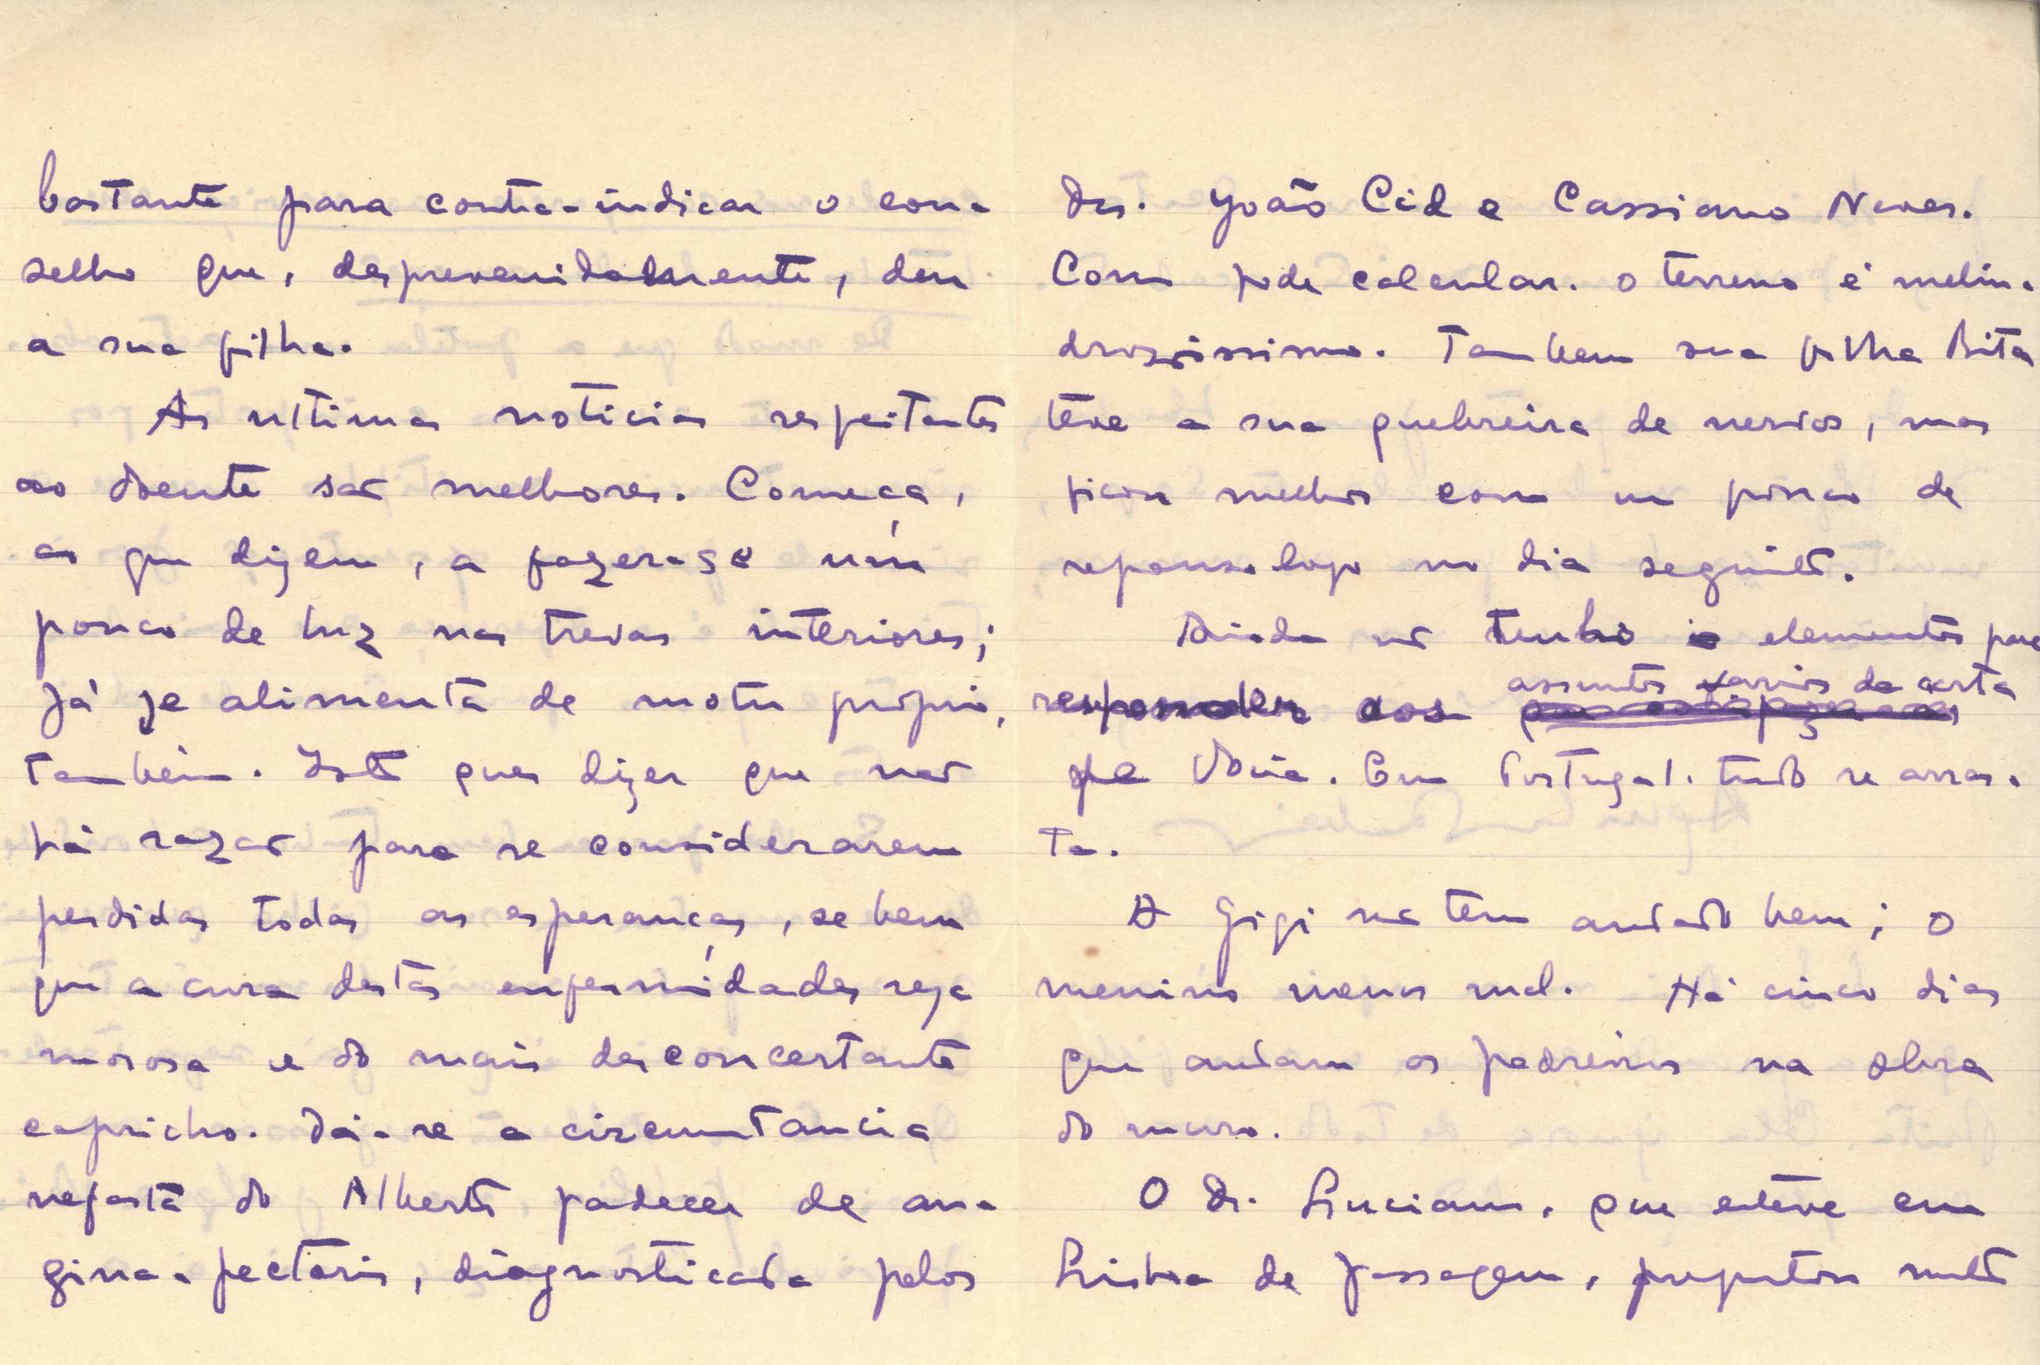 bastante para contra-indicar o con-
selho que, desprevenidamente, deu
a sua filha.
As ultimas noticias respeitantes
ao doente são melhores. Começa,
ao que dizem, a fazer-se um
pouco de luz nas trevas interiores;
já se alimenta de motu próprio,
tambêm. Isto quer dizer que não
há razão para se considerarem
perdidas todas as esperanças, se bem
que a cura destas enfermidades seja
morosa e do mais desconcertante
capricho. Dá-se a circunstancia
nefasta do Alberto padecer de an-
gina-pectoris, diagnosticada pelos
Drs. João Cid e Cassiano Neves.
Como pode calcular. o terreno é melin-
drosissimo. Tambem sua filha Rita
têve a sua quebreira de nervos, mas
ficou melhor com um pouco de
repouso logo no dia seguinte.
Ainda não tenho elementos para
responder aos assuntos varios da carta
de V. Em Portugal. tudo se arras-
ta.
A Gigi não tem andado bem; o
menino menos mal. Há cinco dias
que andam os pedreiros na obra
do muro.
O Dr. Luciano, que estêve em
Lisboa de passagem, perguntou muito